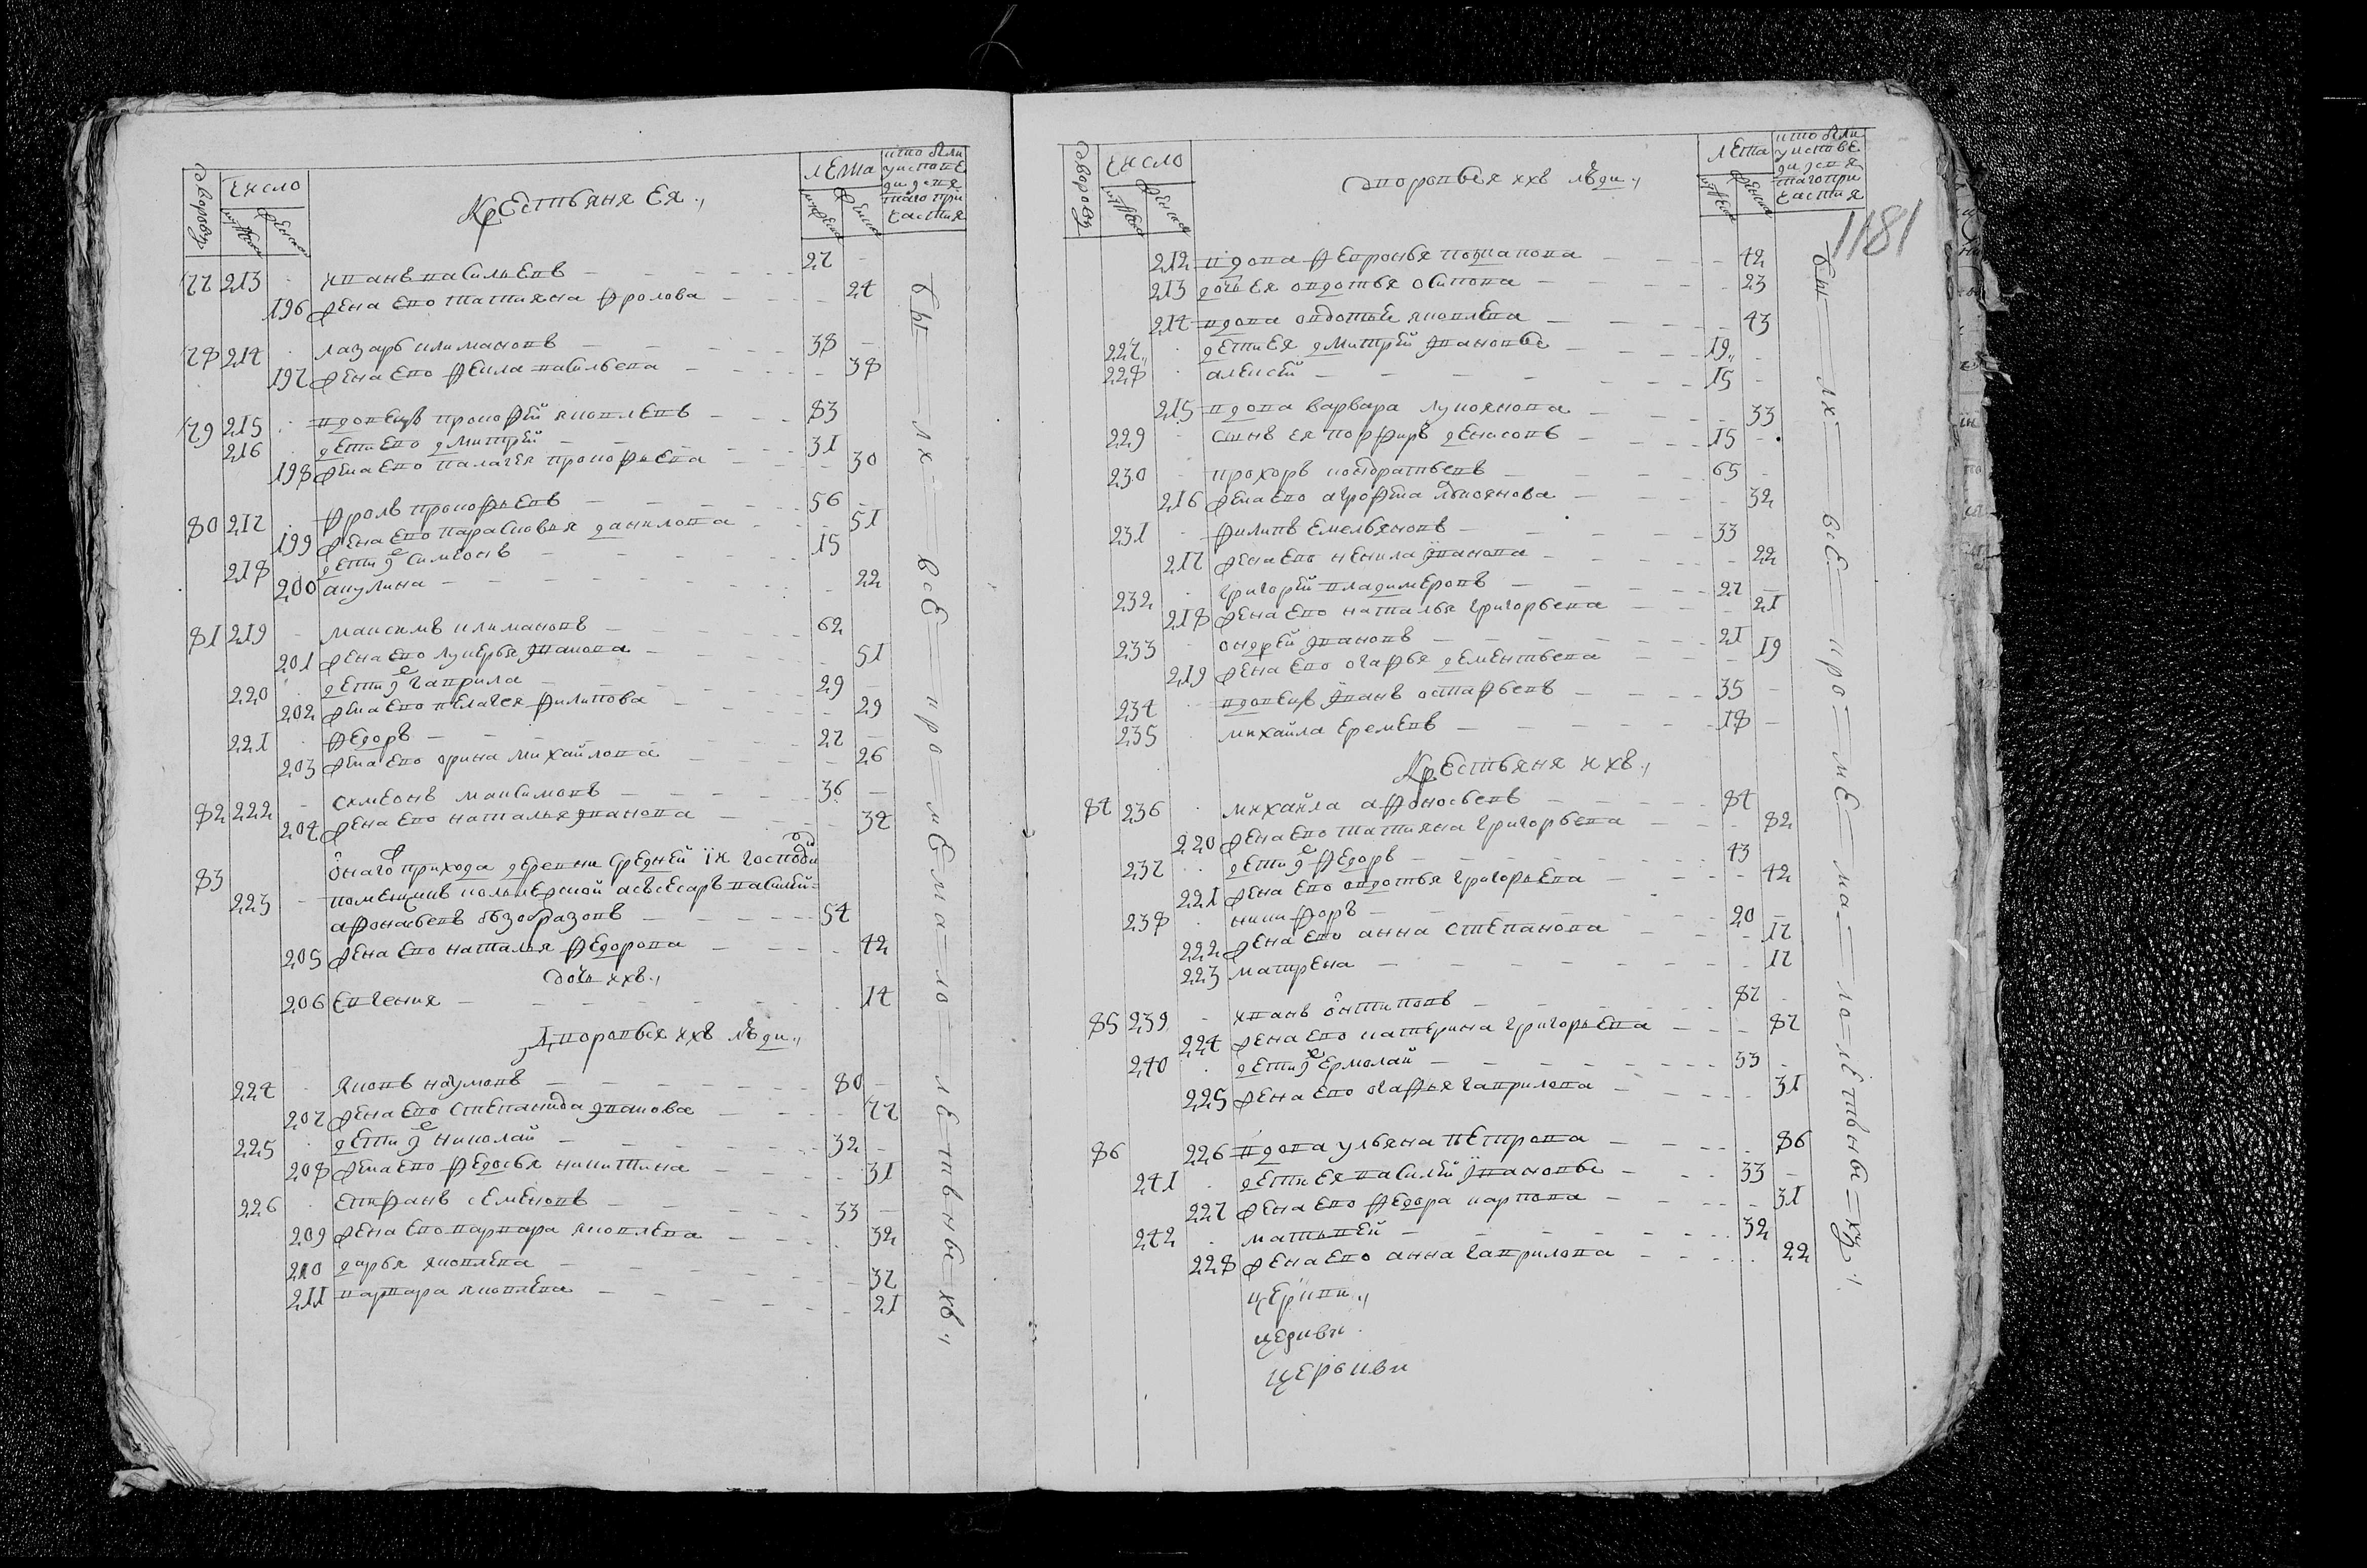 дворовъ
число
мужеска
женска
Крестьяня ея
лета
мужеска
женска
кто были у исповеди и у святаго причастия
77 213 иванъ васильевъ 27
196 жена ево татияна фролова 24
78 214 лазарь климановъ 38
197 жена ево фекла васильева 38
79 215 вдовецъ прокофей яковлевъ 83
216 дети ево дмитрей 31
198 жена ево палагея прокофьева 30
80 217 фролъ прокофьевъ 56
199 жена ево парасковья данилова 51
218 дети ж симеонъ 15
200 акулина 22
81 219 максимъ климановъ 62
201 жена ево лукерья иванова 51
220 дети ж гаврила 29
202 жена ево пелагея филипова 29
221 федоръ 27
203 жена ево орина михайлова 26
82 222 симеонъ максимовъ 36
204 жена ево наталья иванова 34
83 онаго прихода деревни средней ік господинъ
223 помещикъ колежской асъсесаръ василей
афонасьевъ obзобразовъ 54
205 жена ево наталья федорова 42
дочь ихъ
206 евгения 14
Дворовыя ихъ люди
224 яковъ наумовъ 80
207 жена ево степанида иванова 77
225 дети ж николай 32
208 жена ево федосья никитина 31
226 епифанъ семеновъ 33
209 жена ево варвара яковлева 32
210 дарья яковлева 37
211 варвара яковлева 21
бы ли все про ме ма ло ле тъны хъ
дворовъ
число
мужеска
женска
дворовыя ихъ люди
лета
мужеска
женска
кто были у исповеди и у святаго причастия
1181
212 вдова февронья потапова 42
213 дочь ея овдотья осипова 23
214 вдова овдотья яковлева 43
227 дети ея дмитрей ивановы 19
228 алексей 15
215 вдова варвара лукоянова 33
229 сынъ ея порфиръ денисовъ 15
230 прохоръ кондратьевъ 65
216 жена ево агрофена лукоянова 32
231 филипъ емельяновъ 33
217 жена ево ненила иванова 22
232 григорей владимеровъ 27
218 жена ево наталья григорьева 21
233 ондрей ивановъ 21
219 жена ево огафья дементьева 19
234 вдовецъ иванъ остафьевъ 35
235 михайла еремевъ 18
Крестьяня ихъ
84 236 михайла афоносьевъ 84
220 жена ево татияна григорьева 82
237 дети ж федоръ 43
221 жена ево овдотья григорьева 42
238 никифоръ 20
222 жена ево анна степанова 17
223 матрена 17
85 239 иванъ онтиповъ 87
224 жена ево катерина григорьева 87
240 дети ж ермолай 33
225 жена ево огафья гаврилова 31
86 226 вдова ульяна петрова 86
241 дети ея василей ивановы 33
227 жена ево федора карпова 31
242 матьвей 32
228 жена ево анна гаврилова 22
церкви
церкви
церькви
бы ли все про ме ма ло летьны хъ